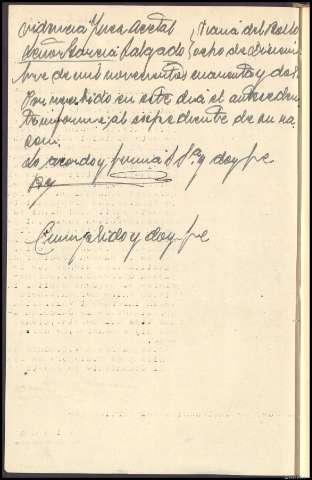 Providencia Juez Accetal } Viana del Bollo
Señor García Salgado } ocho de Diciem
bre de mil novecientos cuarenta y dos.
Por recibido en este día el anteceden
te informe, al expediente de su ra
zon.
Lo acordo y firma S Sª y doy fe
Cumplido y doy fe